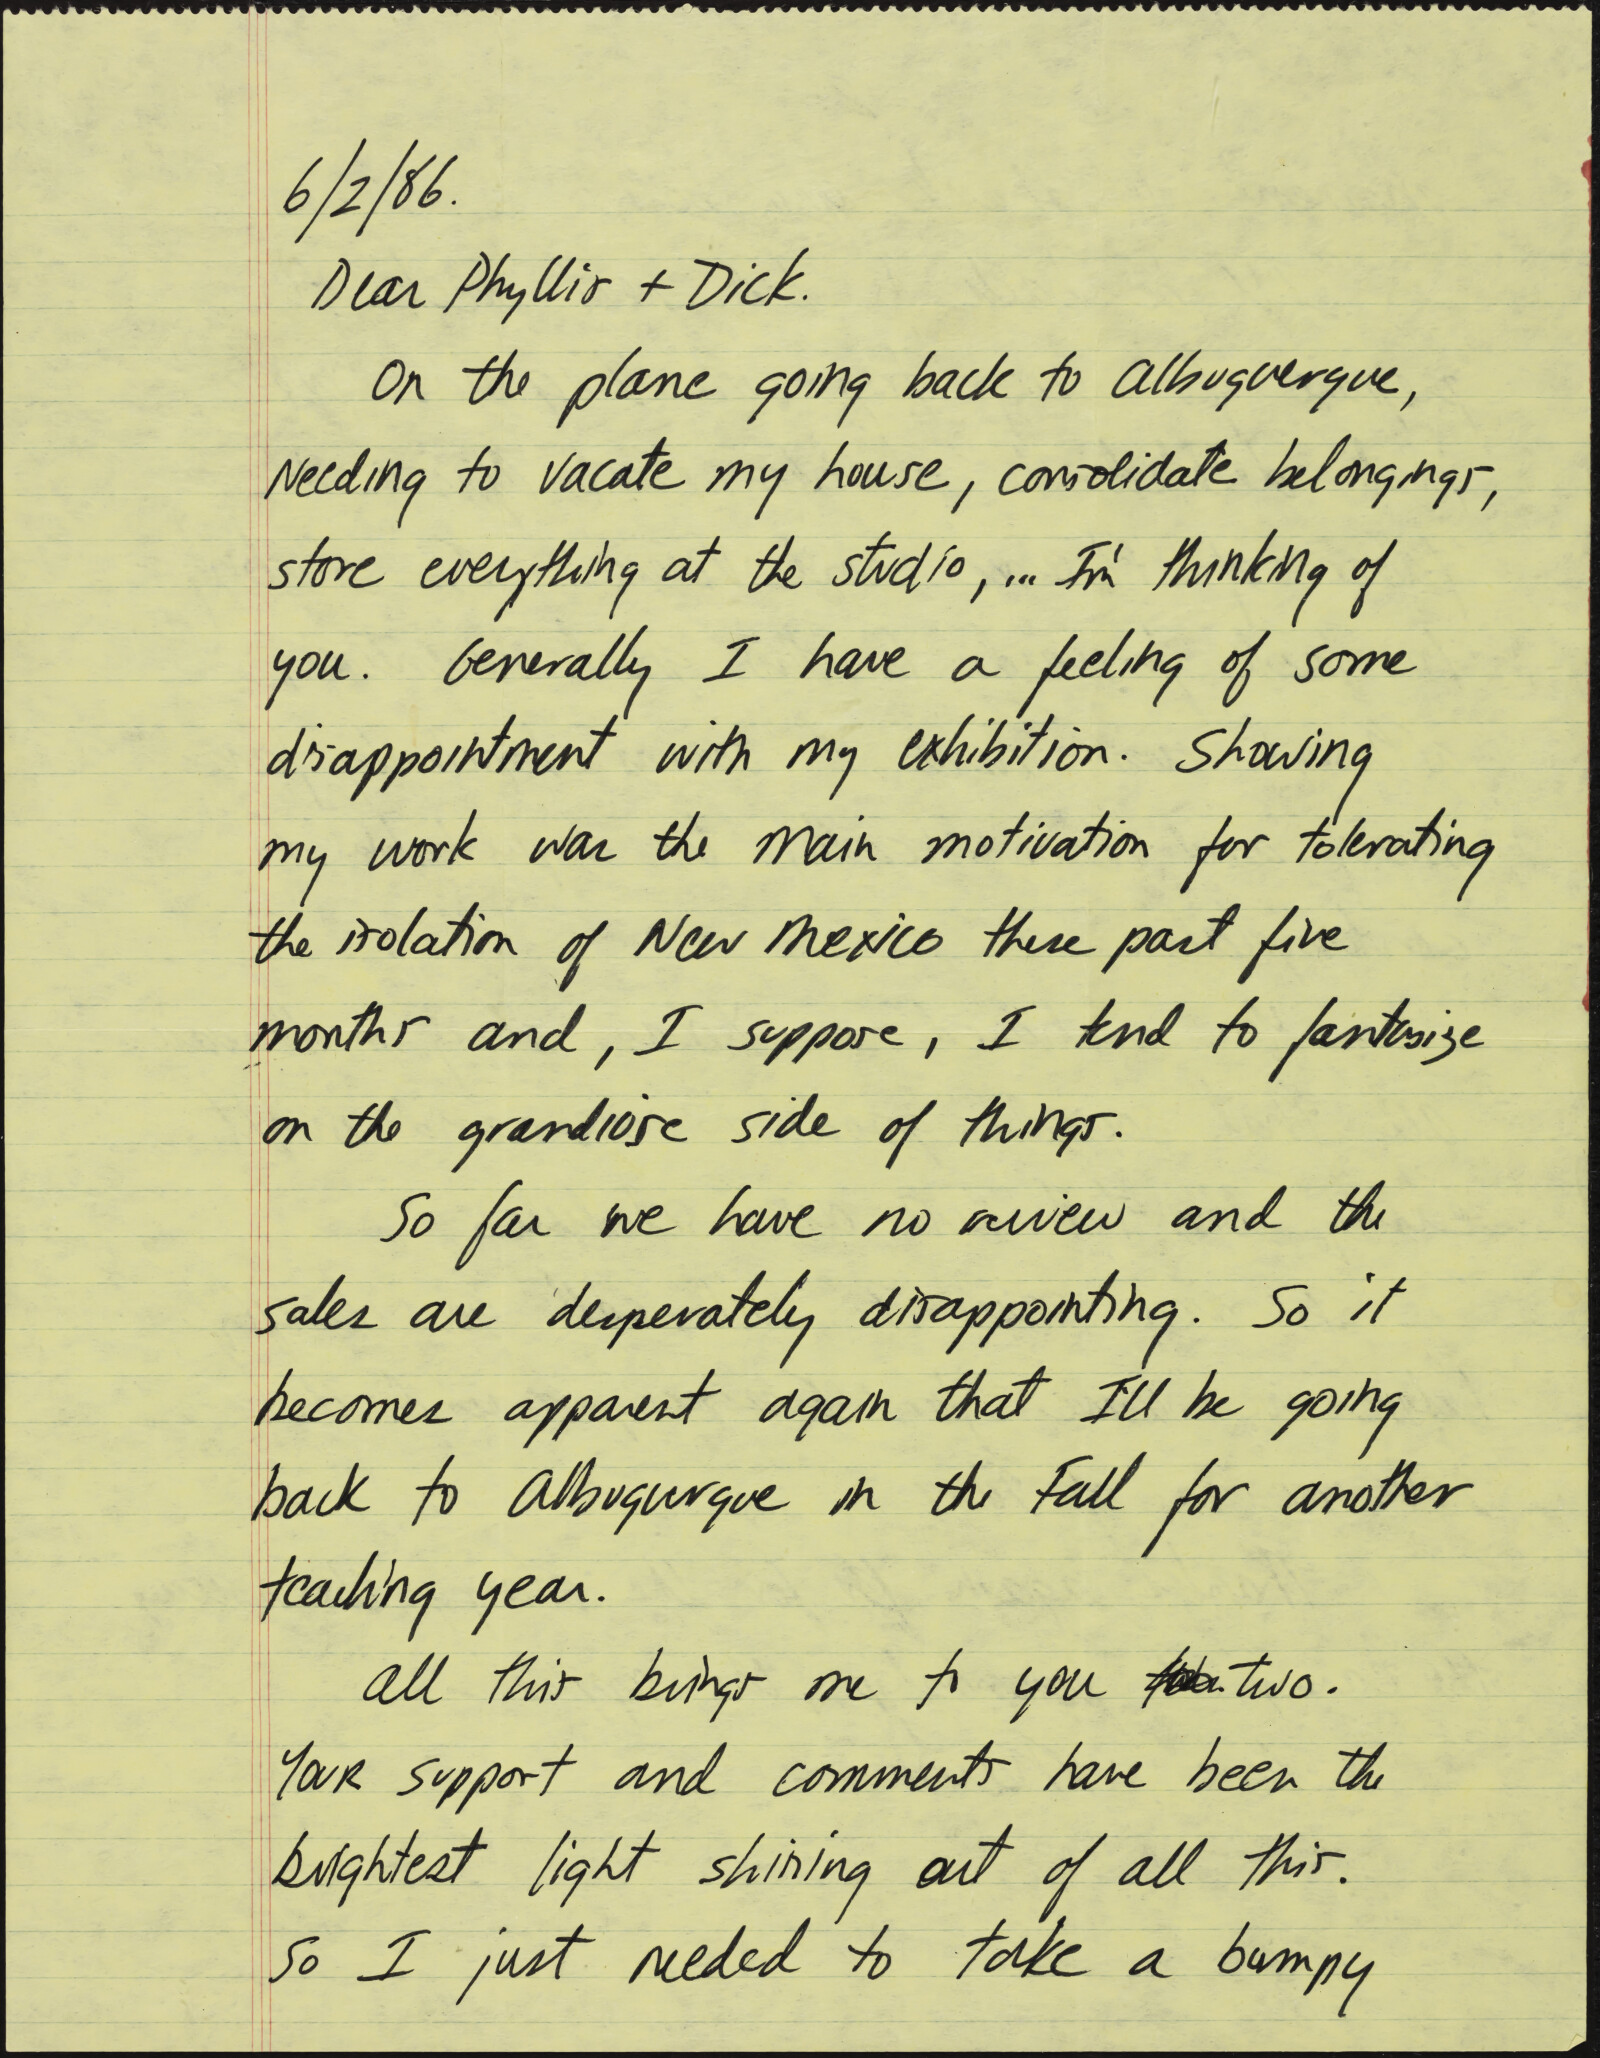 6/2/86.
Dear Phyllis + Dick.
On the plane going back to Albuquerque,
Needing to vacate my house, consolidate belongings,
store everything at the studio, ... I'm thinking of
you. Generally I have a feeling of some
disappointment with my exhibition. Showing
my work was the main motivation for tolerating
the isolation of New Mexico these past five
months and, I suppose, I tend to fantasize
on the grandiose side of things.
So far we have no review and the
sales are desperately disappointing. So it
becomes apparent again that I'll be going
back to Albuqurque in the Fall for another
teaching year.
All this brings me to you two.
Your support and comments have been the
brightest light shining out of all this.
So I just needed to take a bumpy